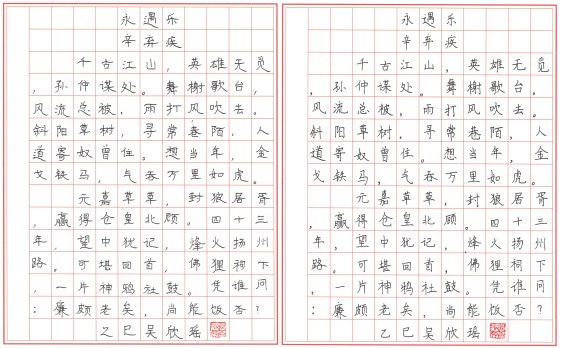 永遇乐
辛弃疾
千古江山，英雄无觅
，孙仲谋处。舞榭歌台，
风流总被，雨打风吹去。
斜阳草树，寻常巷陌，人
道寄奴曾住。想当年，金
戈铁马，气吞万里如虎。
元嘉草草，封狼居胥
，赢得仓皇北顾。四十三
年，望中犹记，烽火扬州
路。可堪回首，佛狸祠下
，一片神鸦社鼓。凭谁问
：廉颇老矣，尚能饭否？
乙巳吴欣瑶
永遇乐
辛弃疾
千古江山，英雄无觅
，孙仲谋处。舞榭歌台，
风流总被，雨打风吹去。
斜阳草树，寻常巷陌，人
道寄奴曾住。想当年，金
戈铁马，气吞万里如虎。
元嘉草草，封狼居胥
，赢得仓皇北顾。四十三
年，望中犹记，烽火扬州
路。可堪回首，佛狸祠下
，一片神鸦社鼓。凭谁问
：廉颇老矣，尚能饭否？
乙巳吴欣瑶